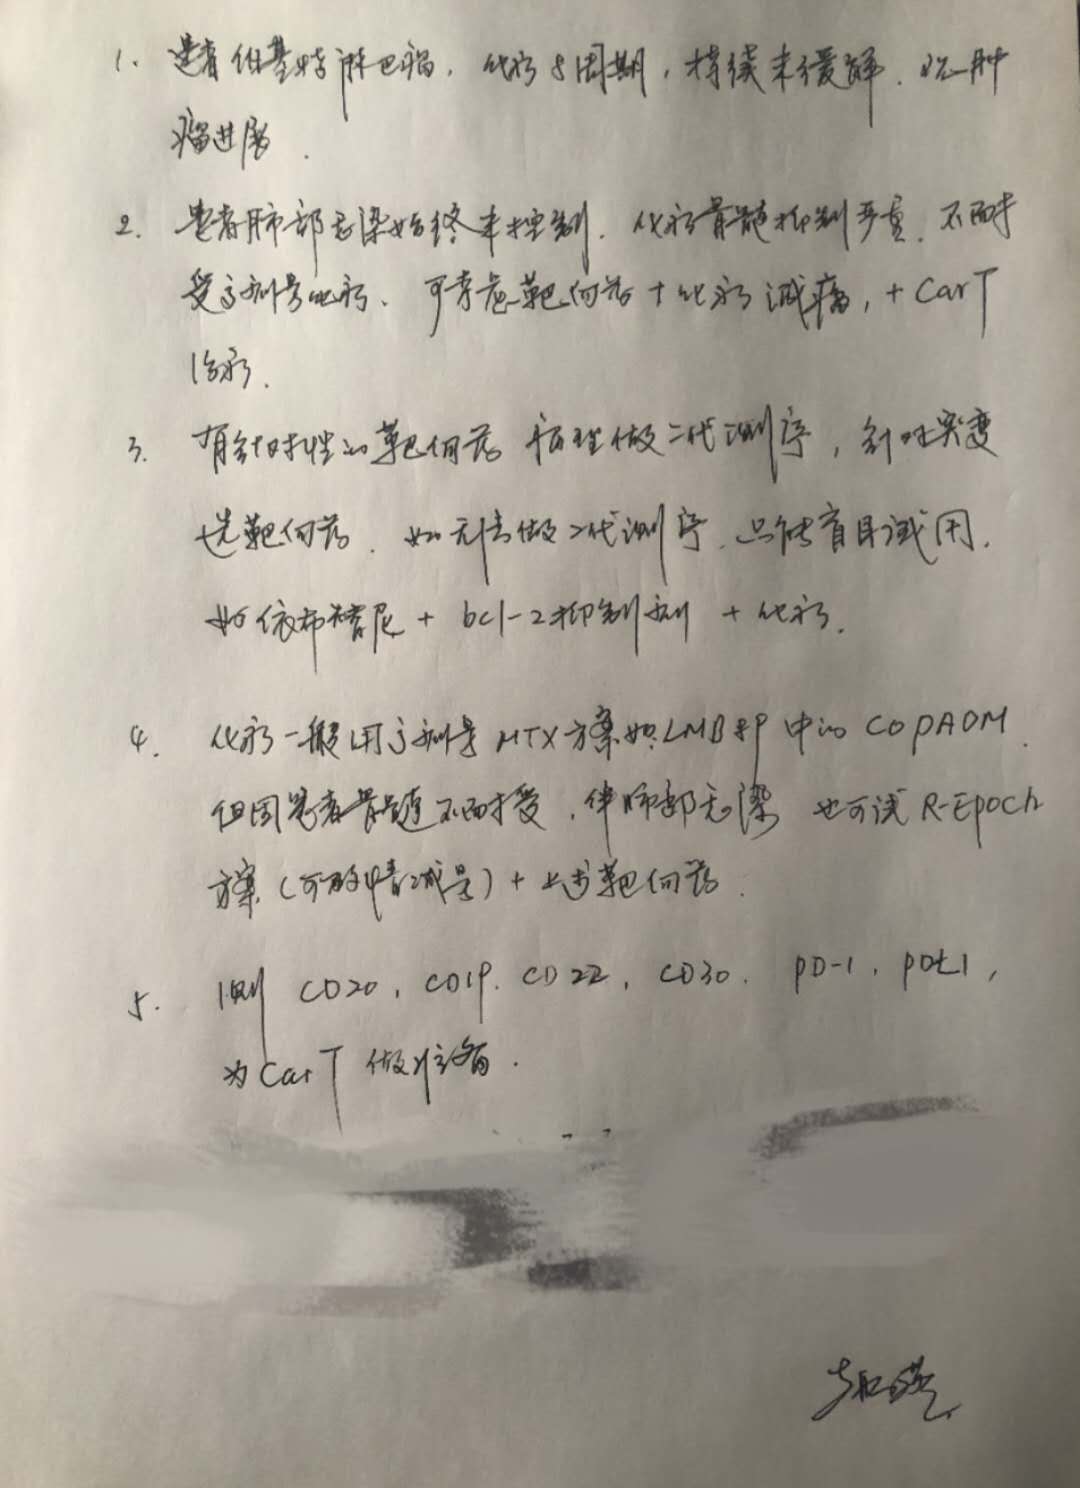 1. 患者伯基特淋巴瘤，化疗8周期，持续未缓解．现肿
瘤进展．
2. 患者肺部感染始终未控制．化疗骨髓抑制严重．不耐
受高剂量化疗．可考虑靶向药＋化疗减瘤，＋CarT
治疗．
3. 有针对性的靶向药 病理做二代测序，针对突变
选靶向药．如无法做二代测序．只能盲目试用．
如依布替尼 + bcl-2抑制剂 + 化疗．
4. 化疗一般用高剂量MTX方案如LMB 中的COPADM．
但因患者骨髓不耐受，伴肺部感染 也可试R-Epoch
方案（可酌情减量）+ 上述靶向药．
5. 测 CD20，CD19．CD22，CD30．PD-1，PDL1，
为CarT 做准备．